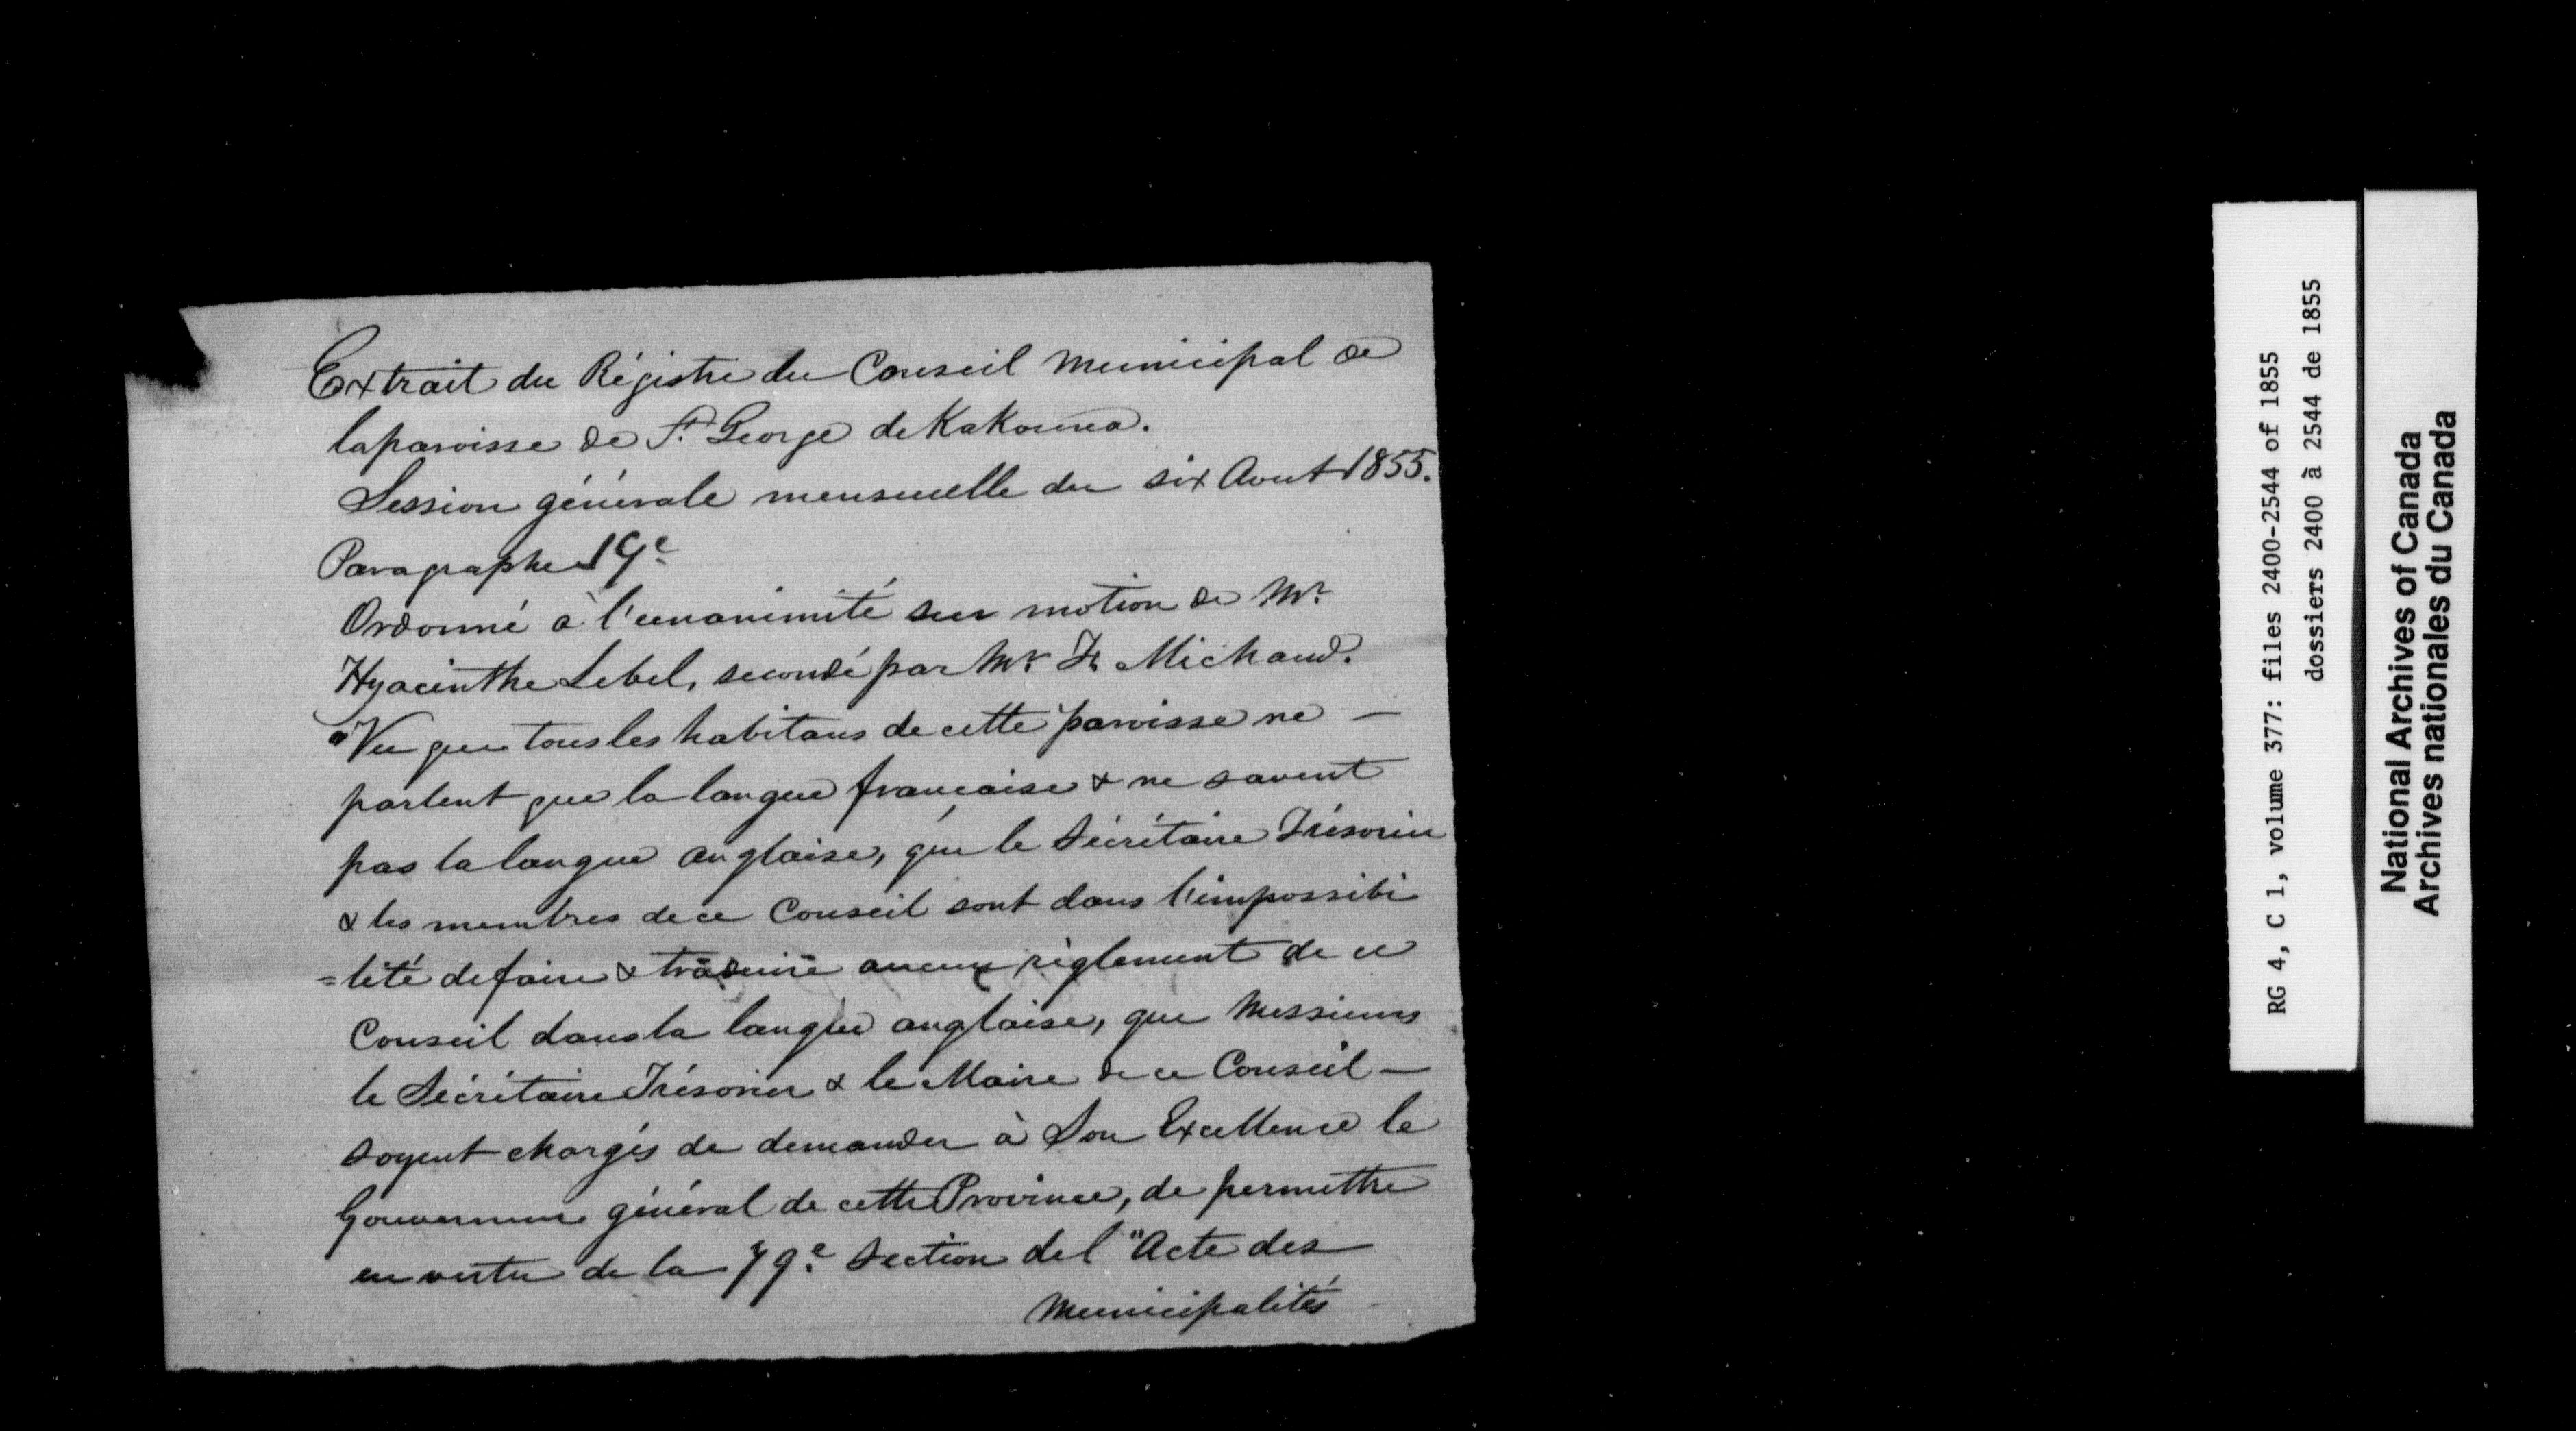 Extrait du Régistre du Conseil Municipal de
la paroisse de St. George de Kakouna.
Session générale mensuelle du six Aout 1855.
Paragraphe 19e
Ordonné à l'unanimité sur motion de Mr.
Hyacinthe Lebel, secondé par Mr. Michaud.
"Vu que tous les habitans de cette paroisse ne —
parlent que la langue française & ne savent
pas la langue anglaise, que le Sécrétaire Trésorier
& les membres de ce Conseil sont dans l'impossibi
=lité de faire & traduire aucun règlement de ce
Conseil dans la langue anglaise, que Messieurs
le Sécrétaire Trésorier & le Maire de ce Conseil —
soyent chargés de demander à Son Excellence le
Gouverneur général de cette Province, de permettre
en vertu de la 79e Section de l "Acte des
Municipalités
RG 4, C 1, volume 377: files 2400-2544 of 1855
dossiers 2400 à 2544 de 1855
National Archives of Canada
Archives nationales du Canada